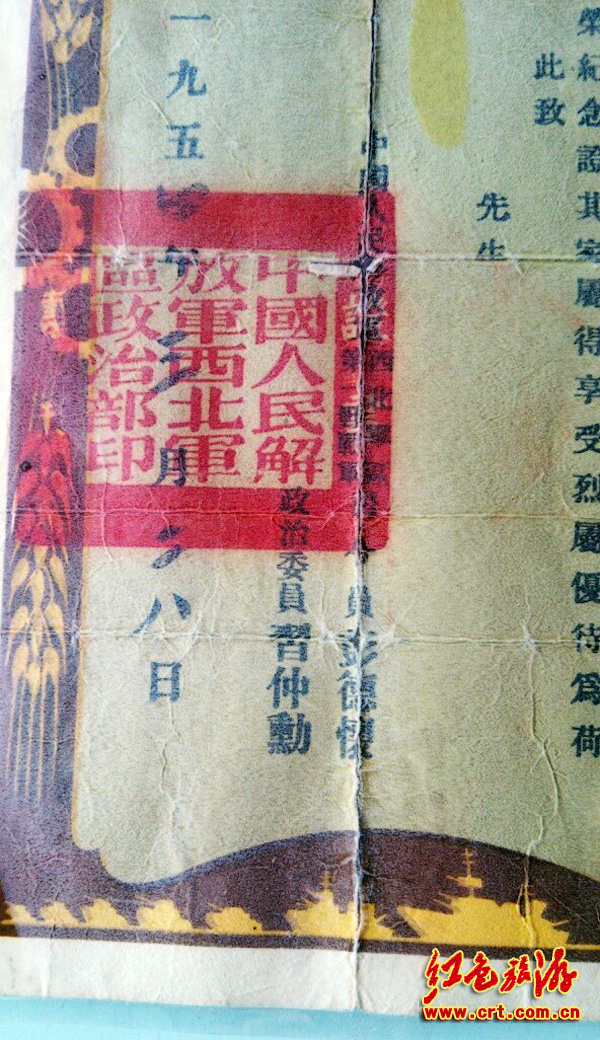 榮紀念證其家屬得享受烈屬優待爲荷
此致
先生
中國人民解放軍
西北軍區
第一野戰軍
員彭德懷
政治委員習仲勳
一九五四年三月八日
中國人民解
放軍西北軍
區政治部印
红色旅游
www.crt.com.cn